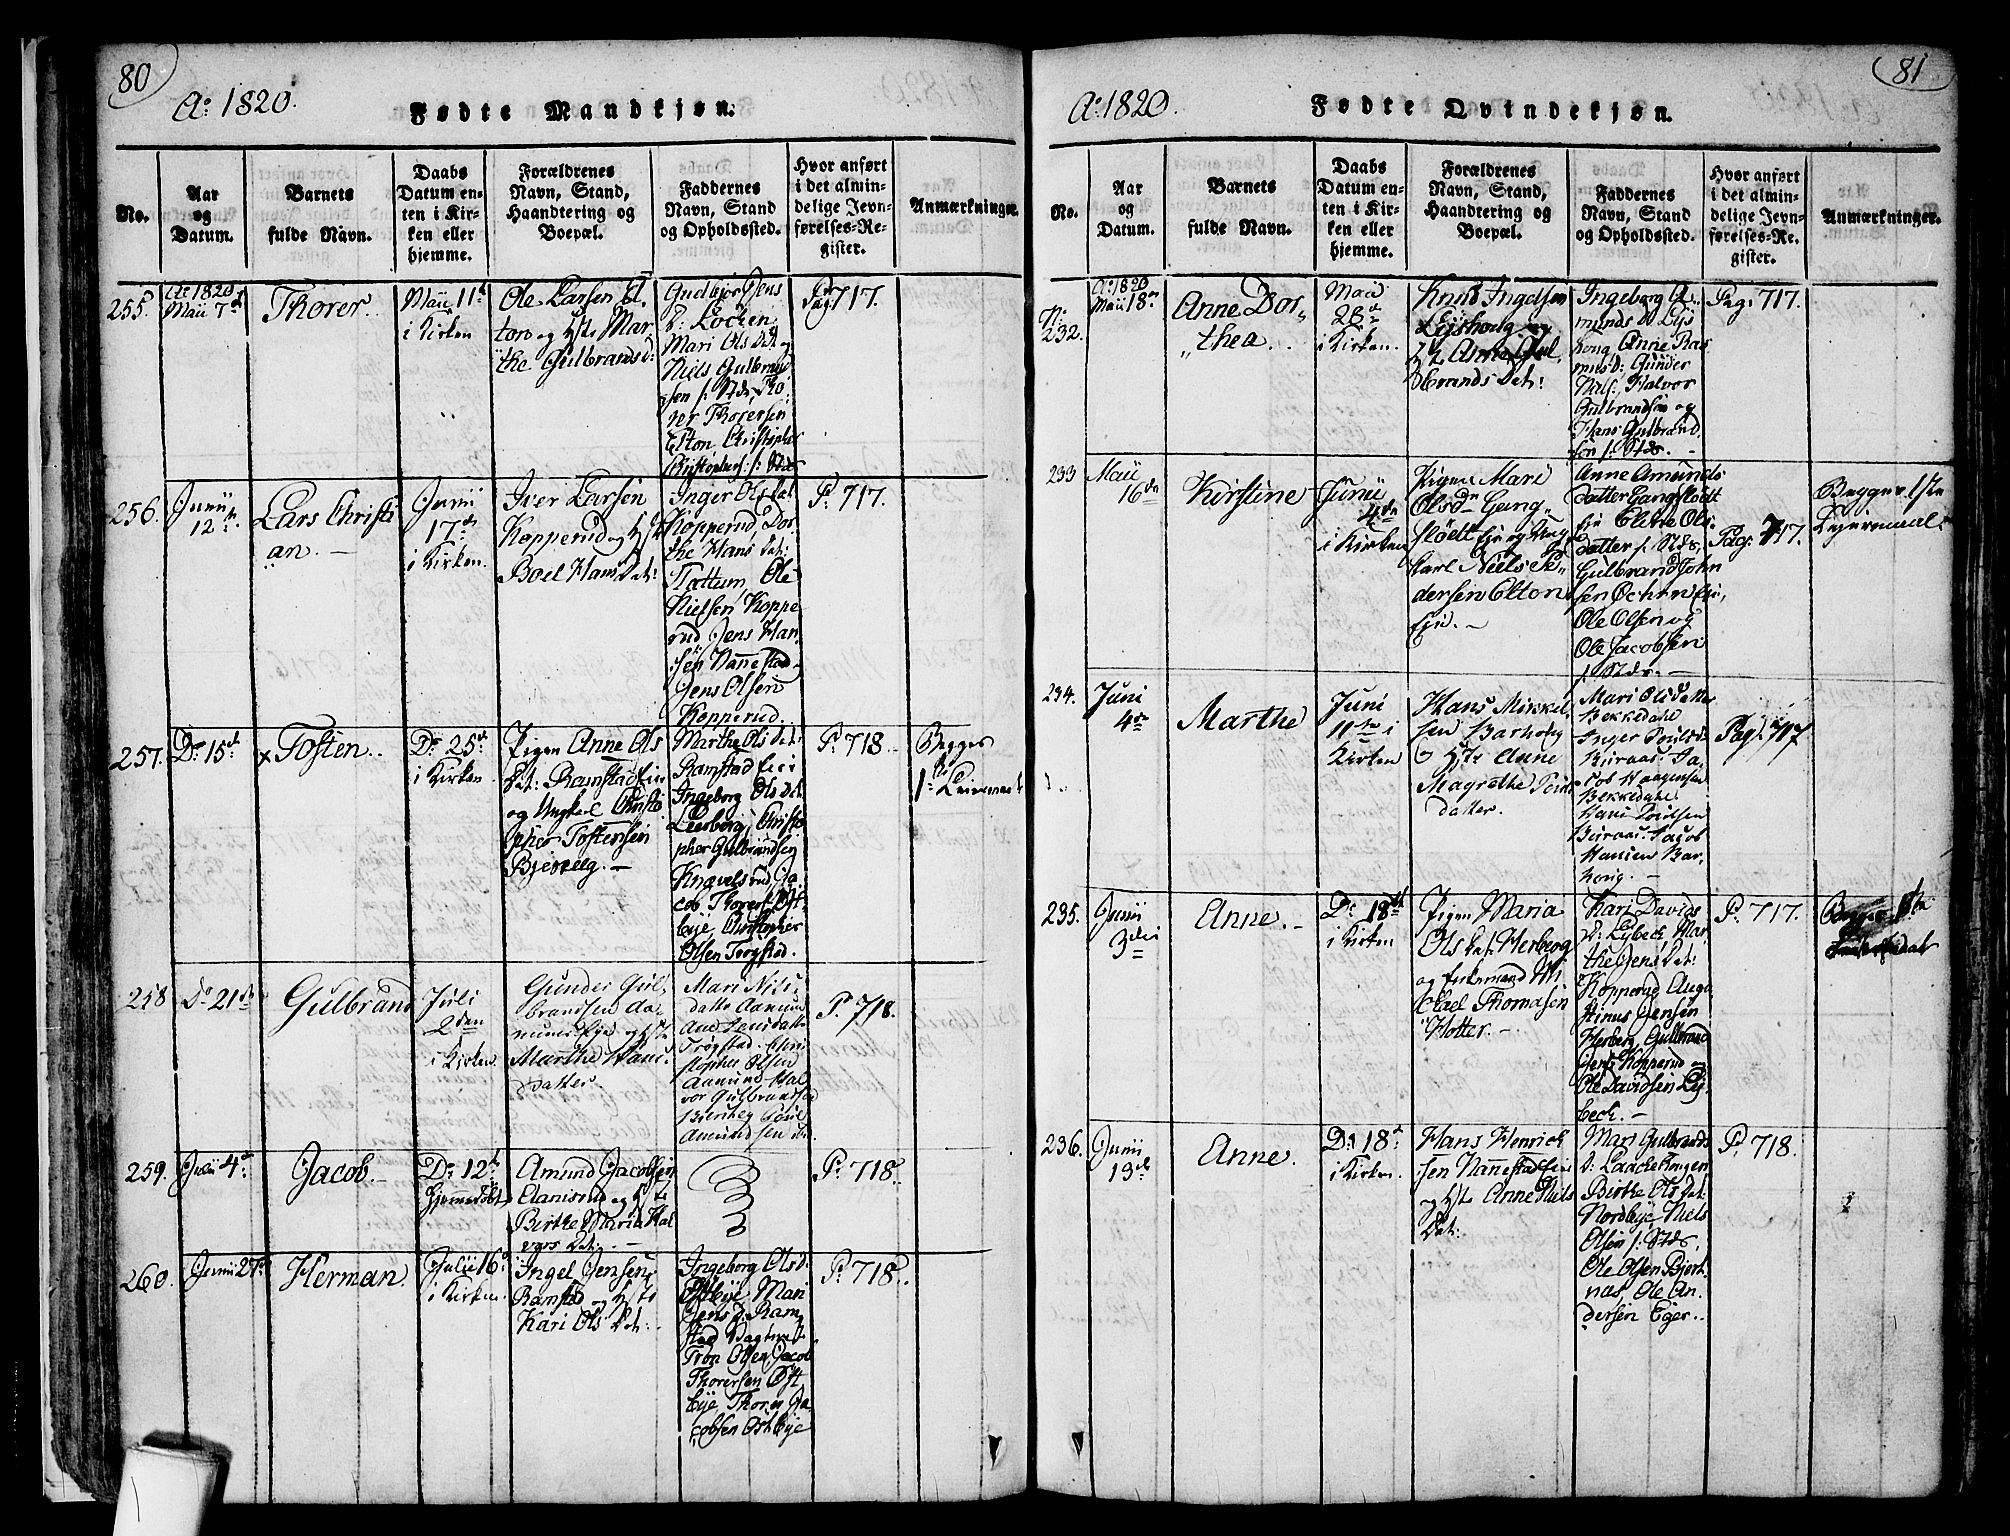 80
Ao 1820.
Fødte Mandkjøn.
No.
Aar
og
Datum.
Barnets
fulde Navn.
Daabs
Datum en-
ten i Kir-
ken eller
hjemme.
Forældrenes
Navn, Stand,
Haandtering og
Boepæl.
Faddernes
Navn, Stand
og Opholdssted.
Hvor anført
i det almin-
delige Jevn-
førelses-Re-
gister.
Anmærkninger.
255.
Ao 1820
Maii 7de
Thorer.
Maii 11te
i Kirken
Ole Larsen El
toro og Hste Mar
the Gulbrandsd:
Gudbjør Jens
D: Löcken
Mari Ols Dat og
Niels Gulbrand
sen
ner Thorersen
Elton Christopher
Pag 717.
256.
Junii
12te
Lars Christi
an.
Junii
17de
i Kirken.
Iver Larsen
Kopperud og Hste
Boel Hans Dat:
Inger Ols Dat
Kopperud, Dor
the Hans Dat:
Tottum, Ole
Nielsen Koppe
rud Jens Han
sen Nannestad
Jens Olsen
Kopperud.
P. 717.
257.
Do 15de
x Tosten.
Do 25de
i Kirken.
Pigen Anne Ols
Dat: Ramstad Eie
og Ungkarl Christo
pher Tostensen
Bjerkelg.
Marthe Ols Dat:
Ramstad Eie
Ingeborg Ols Dat
Leerberg, Christo
pher Gulbrandsen
Knævelsrud, Ja
cob Thorers: Øst
bye, Christopher
Olsen Trogstad.
P. 718.
Begges
1te Leiermaal
258
Do 21de
Gulbrand
Juli
2den
i Kirken
Gunder Gul
brandsen Aa
mund Eje og Hste
Marthe Hans
datter.
Mari Nils
datter Aamund
Ane Larsdatter
Trøgstad. Chri
stopher Olsen
Aamund Hal
vor Gulbrandsen
Poul
Amundsen ibd.
P. 718.
259.
Julii 4de
Jacob.
Do 12te
Hjemmedøbt
Amund Jacobsen
og Hste
Birthe Maria Hal
vors Dat:
P. 718.
260.
Junii 27de
Herman.
Julii 16de
i Kirken.
Ingel Jensen
Ramstad Hste
Kari Ols Dat:
Ingeborg Olsd:
Østbye Mari
Jens d: Ram
stad
Tron Olsen Jacob
Thorersen Øst
bye, Thorer Ja
cobsen Østbye
P. 718.
81
Ao 1820.
Fødte Qvindekjøn.
No.
Aar
og
Datum.
Barnets
fulde Navn.
Daabs
Datum en-
ten i Kir-
ken eller
hjemme.
Forældrenes
Navn, Stand,
Haandtering og
Boepæl.
Faddernes
Navn, Stand
og Opholdssted.
Hvor anført
i det almin-
delige Jevn-
førelses-Re-
gister.
Anmærkninger.
N:
232.
Ao 1820
Maii 18de
Anne Dor-
thea.
Maii
28de
i Kirken.
Knud Ingelsen
Lejshoug og
H te Anne Gul
brands Dat:
Ingeborg A
munds D: Lejs
houg Anne Ras
musd: Gunder
Nils: Halvor
Gulbrandsen og
Hans Gulbrand
sen f: Stds.
Pag: 717.
233
Maii
16de
Kirstine
Junii
4de
i Kirken
Pigen Mari
Olsd Gang
flödt Eje og Ung
karl Niels Pe
dersen Elton
Eje.
Anne Amunds
datter Gangflödt
Eje Eline Ols
datter f: Stds,
Gulbrand John
sen Eje,
Ole Olsen og
Ole Jacobsen
f: Stds.
Pag: 717.
Begges 1ste
Lejermaal
234.
Juni
4de
Marthe
Juni
11te i
Kirken
Hans Mikkel
sen Barhoug
og Hste Anne
Magrethe Pouls
datter.
Mari Olsdatter
Bekkedahl
Inger Poulsd:
Buraas. Ja
cob Haagensen
Bekkedahl
Hans Poulsen
Buraas. Jacob
Hansen Bar
houg.
Pag. 717
235.
Junii
3die
Anne.
Do 18de
i Kirken
Pigen Maria
Ols Dat. Herberg
og Enkemand Mi
chael Thomasen
Holter.
Kari Davids
D: Lybeck Mar
the Jens Dat:
Kopperud Augu
stinus Jensen
Herberg, Gulbrand
Jens: Kopperud og
Ole Davidsen Ly
beck.
P. 717.
236.
Junii
13de
Anne.
Do 18de
i Kirken.
Hans Henrick
sen Nannestad Eie
og Hste Anne Niels
Dat:
Mari Gulbrands
D:
Birthe Ols Dat:
Nordbye Niels
Olsen f: Stds,
Ole Olsen Bjert
næs, Ole An
dersen Eger.
P. 718.